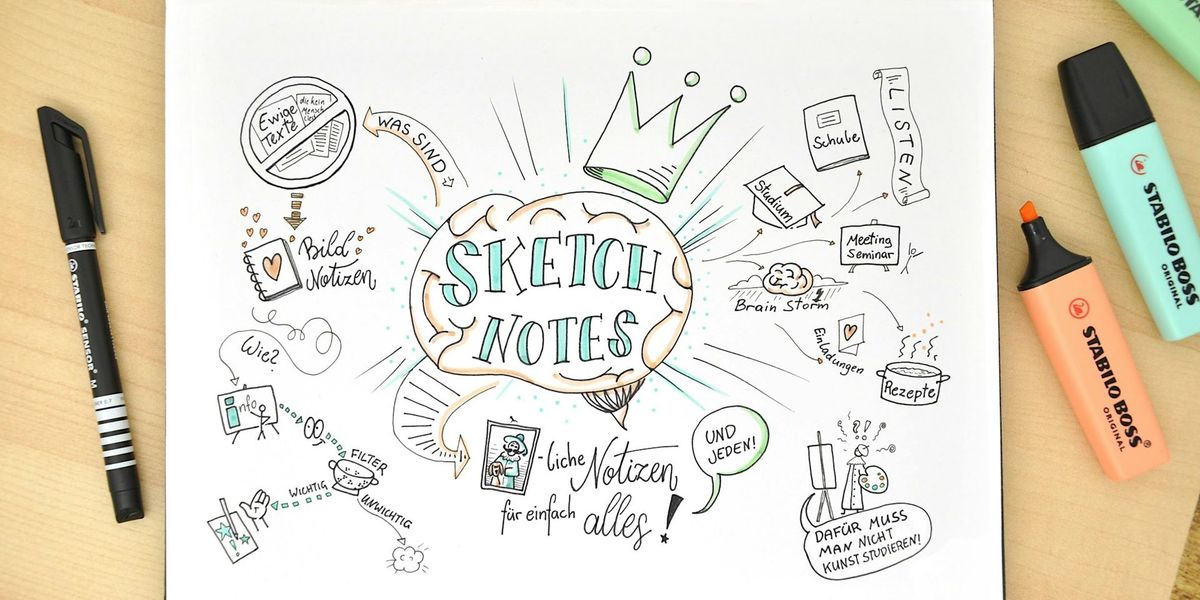 Ewige
Texte
die kein
Mensch
liest
WAS SIND
Bild
Notizen
SKETCH
NOTES
Schule
LISTEN
Studium
Meeting
Seminar
Brain Storm
Einladungen
Rezepte
Wie?
info
FILTER
WICHTIG
UNWICHTIG
-liche Notizen
für einfach alles!
UND
JEDEN!
?!?
DAFÜR MUSS
MAN NICHT
KUNST STUDIEREN!
STABILO SENSOR M
STABILO BOSS
ORIGINAL
STABILO BOSS
ORIGINAL